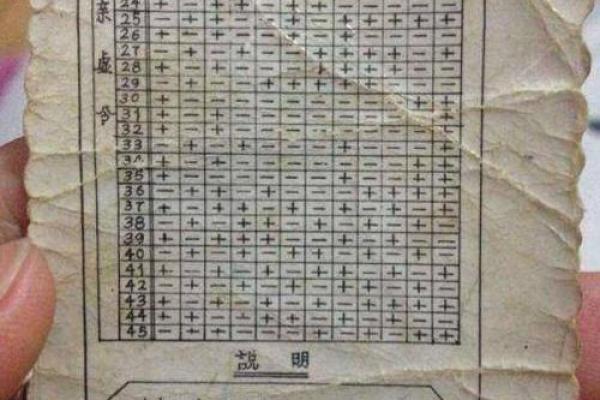 亲
虚
令
24
25
26 + - + - - - - - - + - +
27
28 + - + - - - + + + + - -
29 - + - - + + + + + - - -
30 + - - - - - - - - - + +
31 + - + - - - - - - - - +
32 + - + - - - - - - - - +
33 - + - + - - - + - - - +
34 + - + - - - - - - - + +
35 + - - - - - - + - - + +
36 - + + - + - - - + + + +
37 + - + + - + - + - + - +
38 - + - + + - + - + - + -
39 + - + + + - - + - + - -
40 - + - + - + + - + - + -
41 + - + - + - + + - + - +
42 - + - + - + - + + - + -
43 + - + - + - + - + + + +
44 + - + - + + - + - + - -
45 - + - + - - + - + - + +
説 明